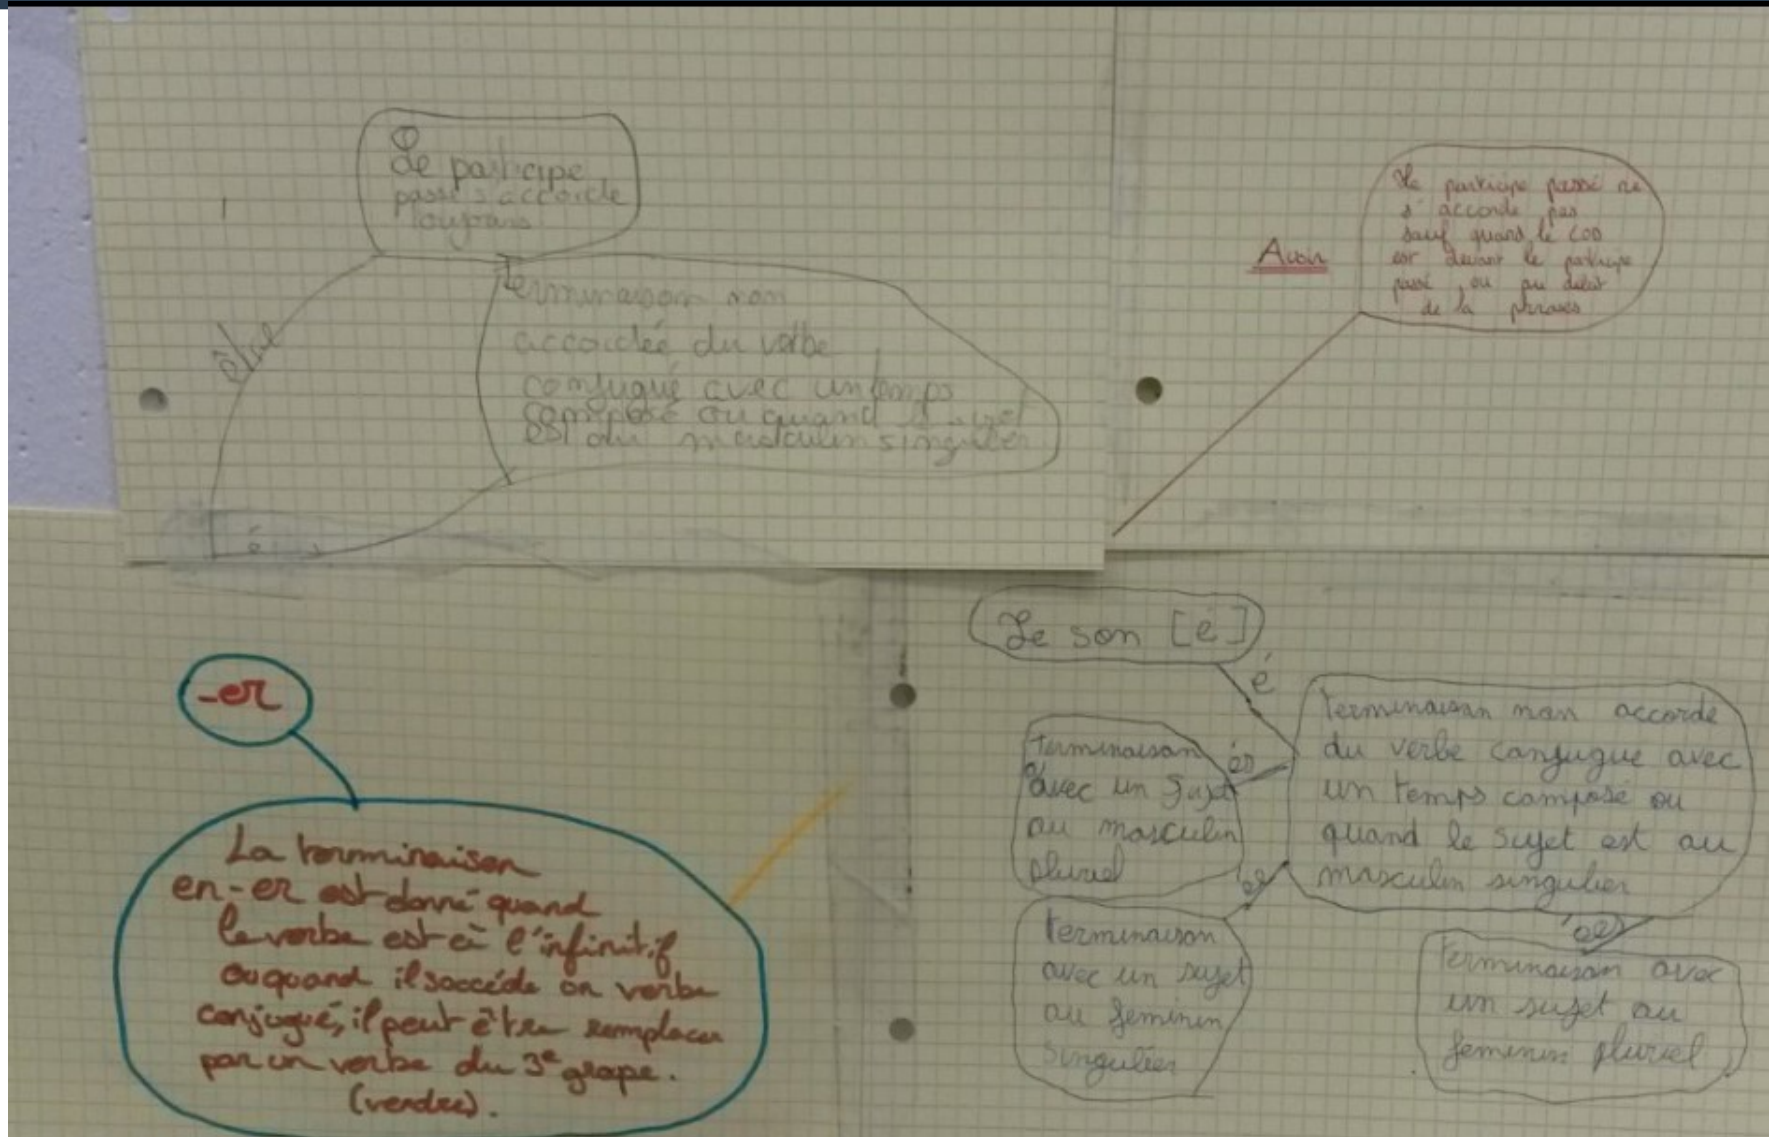 Le participe
passé s'accorde
toujours
être
Terminaison non
accordée du verbe
conjugué avec un temps
composé ou quand
est au masculin singulier
é
Avoir
Le participe passé ne
s'accorde pas
sauf quand le COD
est devant le participe
passé, ou au début
de la phrases
-er
La terminaison
en -er est donné quand
le verbe est à l'infinitif
ou quand il succéde on verbe
conjugué, il peut être remplacer
par un verbe du 3e grope.
(vendre).
Le son [é]
é
Terminaison non accorde
du verbe conjugue avec
un temps composé ou
quand le sujet est au
masculin singulier
Terminaison
avec un sujet
au masculin
pluriel
Terminaison
avec un sujet
au feminin
singulier
Terminaison avec
un sujet au
feminin pluriel